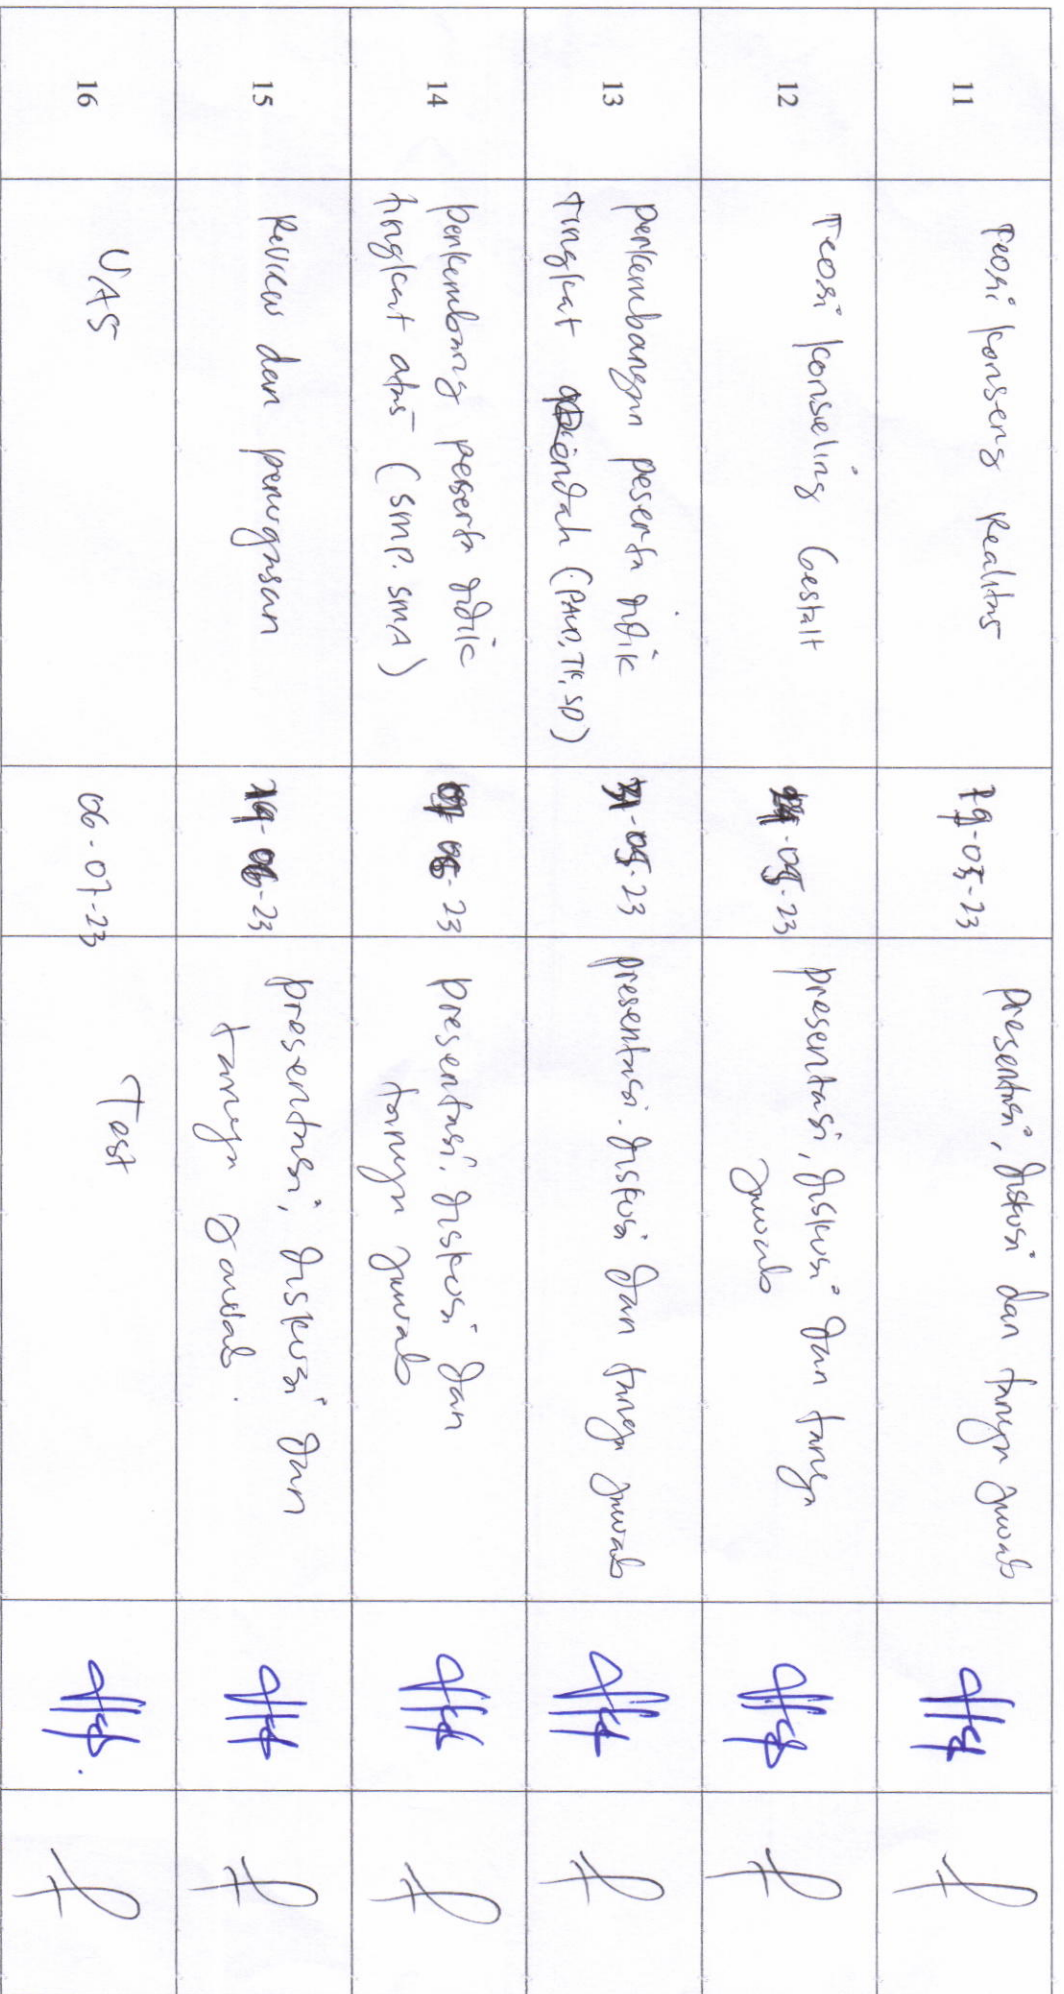 11
Teori Konseng Realitas
19-05-23
presentasi, diskusi dan tanya jawab
12
Teori Konseling Gestalt
05-23
presentasi, diskusi dan tanya
jawab
13
perkembangan peserta didik
Tingkat rendah (PAUD, TK, SD)
31-05-23
presentasi. diskusi dan tanya jawab
14
perkembang peserta didik
tingkat atas (SMP. SMA)
07 06-23
presentasi, diskusi dan
tanya jawab
15
Review dan penugasan
14-06-23
presentasi, diskusi dan
tanya jawab.
16
UAS
06-07-23
Test